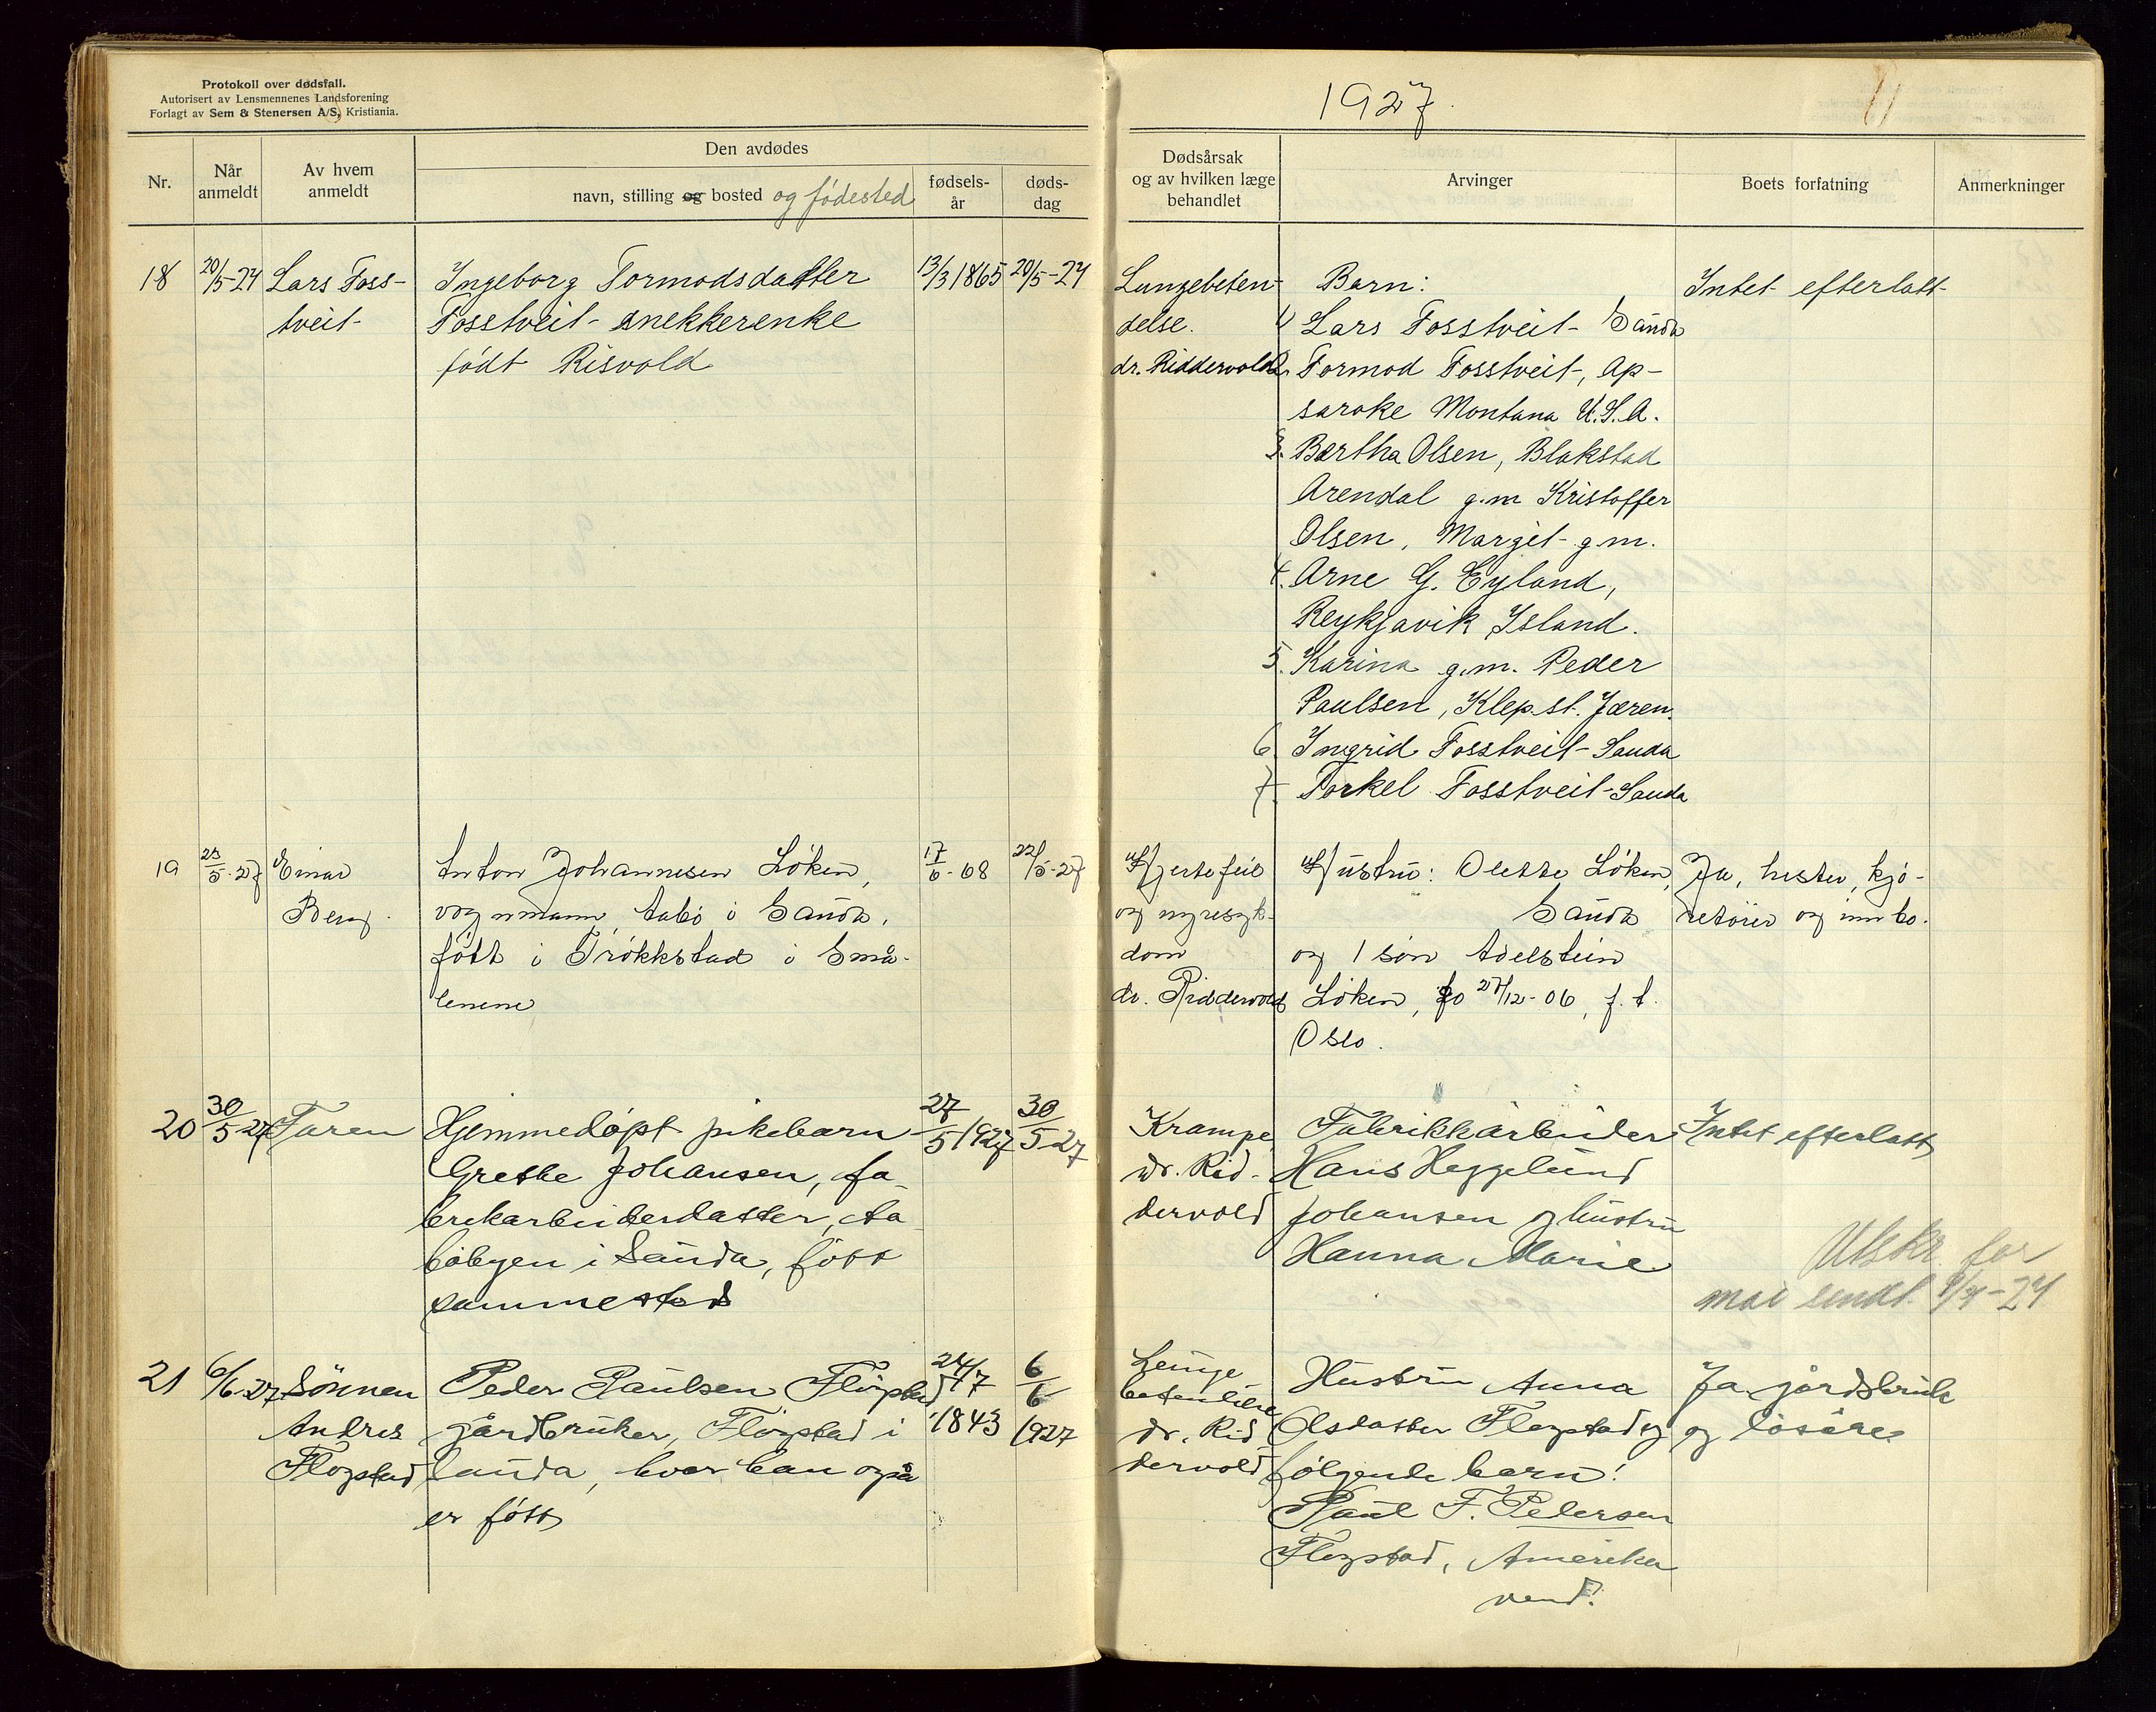 Protokoll over dødsfall.
Autorisert av Lensmennenes Landsforening
Forlagt av Sem & Stenersen A/S, Kristiania.
1927.
11
Nr.
Når anmeldt
Av hvem anmeldt
Den avdødes
navn, stilling og bosted og fødested
fødselsår
dødsdag
Dødsårsak og av hvilken læge behandlet
Arvinger
Boets forfatning
Anmerkninger
18
20/5-27
Lars Foss-
tveit
Ingeborg Tormodsdatter
Fosstveit - snekkerenke
født Risvold
13/3 1865
20/5-27
Lungebeten-
delse.
dr. Riddervold
Barn:
1/ Lars Fosstveit - Sauda
2. Tormod Fosstveit, Ap-
saroke Montana U.S.A.
3. Bertha Olsen, Blakstad
Arendal g.m Kristoffer
Olsen, Margit g.m.
4. Arne G. Eyland,
Reykjavik Island.
5. Karina g.m. Peder
Paulsen, Klep st. Jæren.
6 Ingrid Fosstveit - Sauda
7. Torkel Fosstveit - Sauda
Intet efterlatt
19
25/5-27
Einar
Berg.
Anton Johannesen Løken,
vognmann, Aabø i Sauda,
født i Trøkkstad i Små-
lenene
17/6-68
22/5-27
Hjertefeil
og nyresyk-
dom
dr. Riddervold
Hustru: Olette Løken,
Sauda
og 1 søn Adelstein
Løken, fø 27/12-06, f. t.
Oslo.
Ja, hester, kjø-
retøier og innbo.
20
30/5 27
Faren
Hjemmedøpt pikebarn
Grethe Johansen, fa-
brikarbeiderdatter, Aa
bøbyen i Sauda, født
sammesteds
27/5 1927
30/5-27
Krampe
dr. Rid-
dervold
Fabrikkarbeider
Hans Heggelund
Johansen og hustru
Hanna Marie
Intet efterlatt
Utskr. for
mai sendt
21
6/6-27
Sønnen
Andres
Fløgstad
Peder Paulsen Fløgstad
gårdbruker, Fløgstad i
Sauda, hvor han også
er født
24/7
1843
6/6
1927
Lunge
betendelse
dr. Rid
dervold
Hustru Anna
Olsdatter Fløgstad og
følgende barn:
Paul F. Pedersen
Fløgstad, Amerika
vend!
Ja gårdsbruk
og løsøre